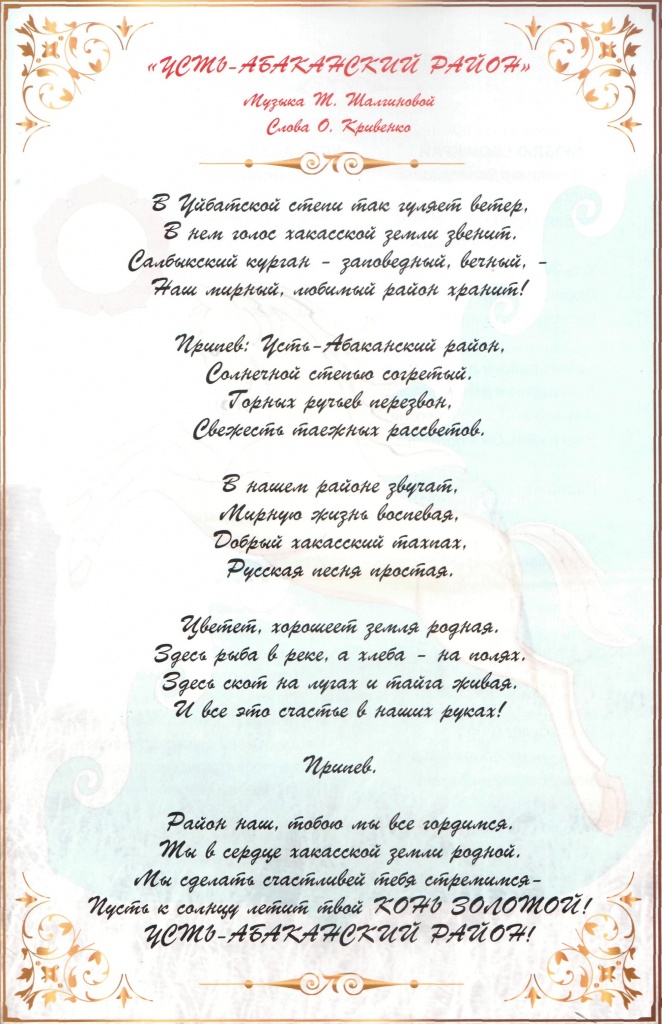 «УСТЬ-АБАКАНСКИЙ РАЙОН»
Музыка Т. Шалгиновой
Слова О. Кривенко
В Уйбатской степи так гуляет ветер,
В нем голос хакасской земли звенит.
Салбыкский курган - заповедный, вечный, -
Наш мирный, любимый район хранит!
Припев: Усть-Абаканский район,
Солнечной степью согретый.
Горных ручьев перезвон,
Свежесть таежных рассветов.
В нашем районе звучат,
Мирную жизнь воспевая,
Добрый хакасский тахпах,
Русская песня простая.
Цветет, хорошеет земля родная.
Здесь рыба в реке, а хлеба - на полях.
Здесь скот на лугах и тайга живая.
И все это счастье в наших руках!
Припев.
Район наш, тобою мы все гордимся.
Ты в сердце хакасской земли родной.
Мы сделать счастливей тебя стремимся-
Пусть к солнцу летит твой КОНЬ ЗОЛОТОЙ!
УСТЬ-АБАКАНСКИЙ РАЙОН!